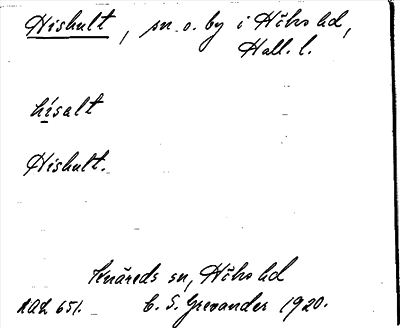 Hishult, sn o. by i Höks hd,
Hall. l.
hísalt
Hishult.
Knäreds sn, Höks hd
651. C. S. Grevander 1920.